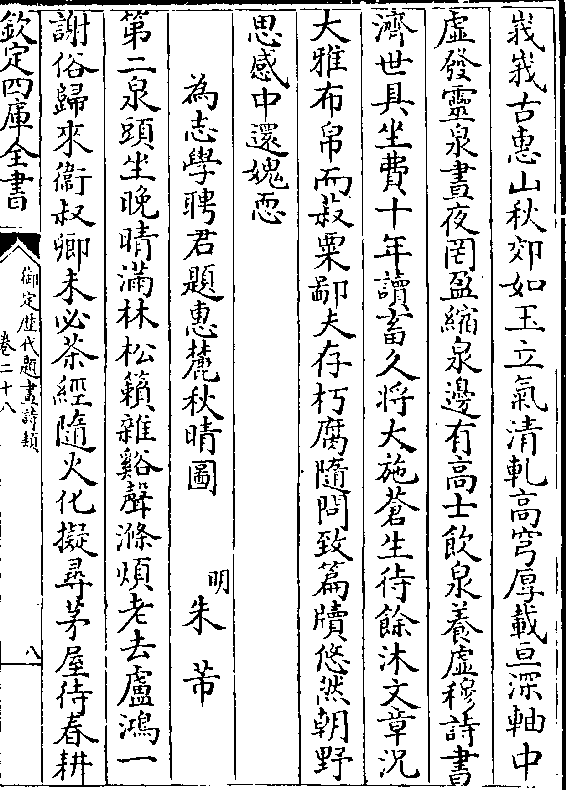 峩峩古惠山秋郊如玉立氣清軋高穹厚載亘深軸中
虛發靈泉晝夜罔盈縮泉邊有高士飲泉養虛穆詩書
濟世具坐費十年讀畜久將大施蒼生待餘沐文章況
大雅布帛而菽粟鄙夫存朽腐隨問致篇牘悠然朝野
思感中還媿恧
為志學聘君題惠麓秋晴圖
明朱芾
第二泉頭坐晚晴滿林松籟雜谿聲滌煩老去盧鴻一
謝俗歸來衞叔卿未必茶經隨火化擬尋茅屋待春耕
欽定四庫全書
御定歷代題畫詩類
卷二十八
八